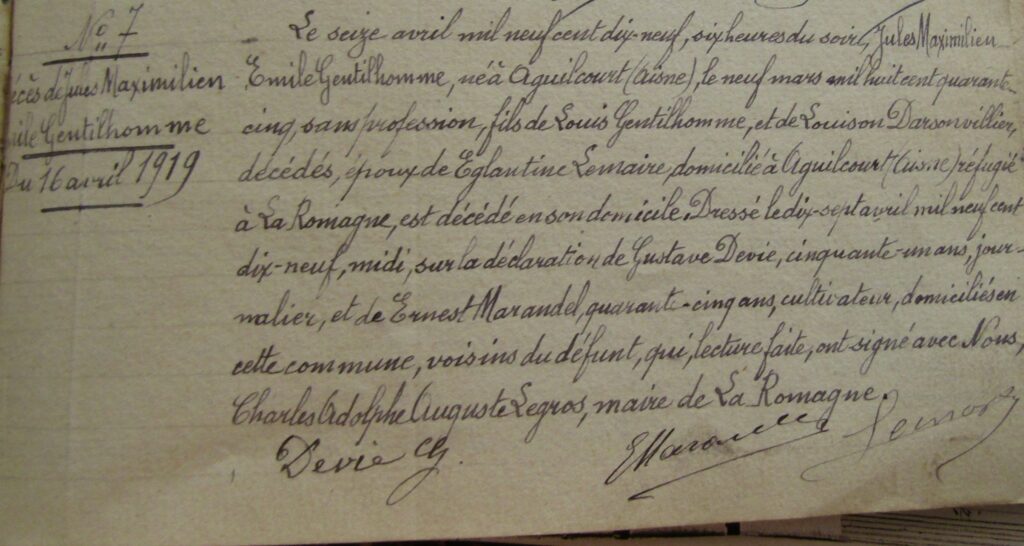 No 7
écès de Jules Maximilien
mile Gentilhomme
Du 16 avril 1919
Le seize avril mil neuf cent dix-neuf, six heures du soir, Jules Maximilien
Emile Gentilhomme, né à Aguilcourt (Aisne), le neuf mars mil huit cent quarante-
cinq, sans profession, fils de Louis Gentilhomme, et de Louison Darsonvillier,
décédés, époux de Eglantine Lemaire, domicilié à Aguilcourt (Aisne) réfugié
à La Romagne, est décédé en son domicile. Dressé le dix-sept avril mil neuf cent
dix-neuf, midi, sur la déclaration de Gustave Devie, cinquante-un ans, jour-
nalier, et de Ernest Marandel, quarante-cinq ans, cultivateur, domiciliés en
cette commune, voisins du défunt, qui, lecture faite, ont signé avec Nous,
Charles Adolphe Auguste Legros, maire de La Romagne.
Devie G